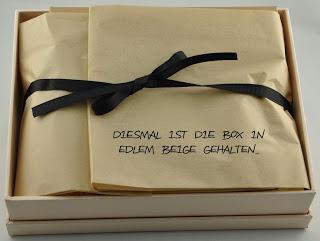 DIESMAL IST DIE BOX IN
EDLEM BEIGE GEHALTEN...